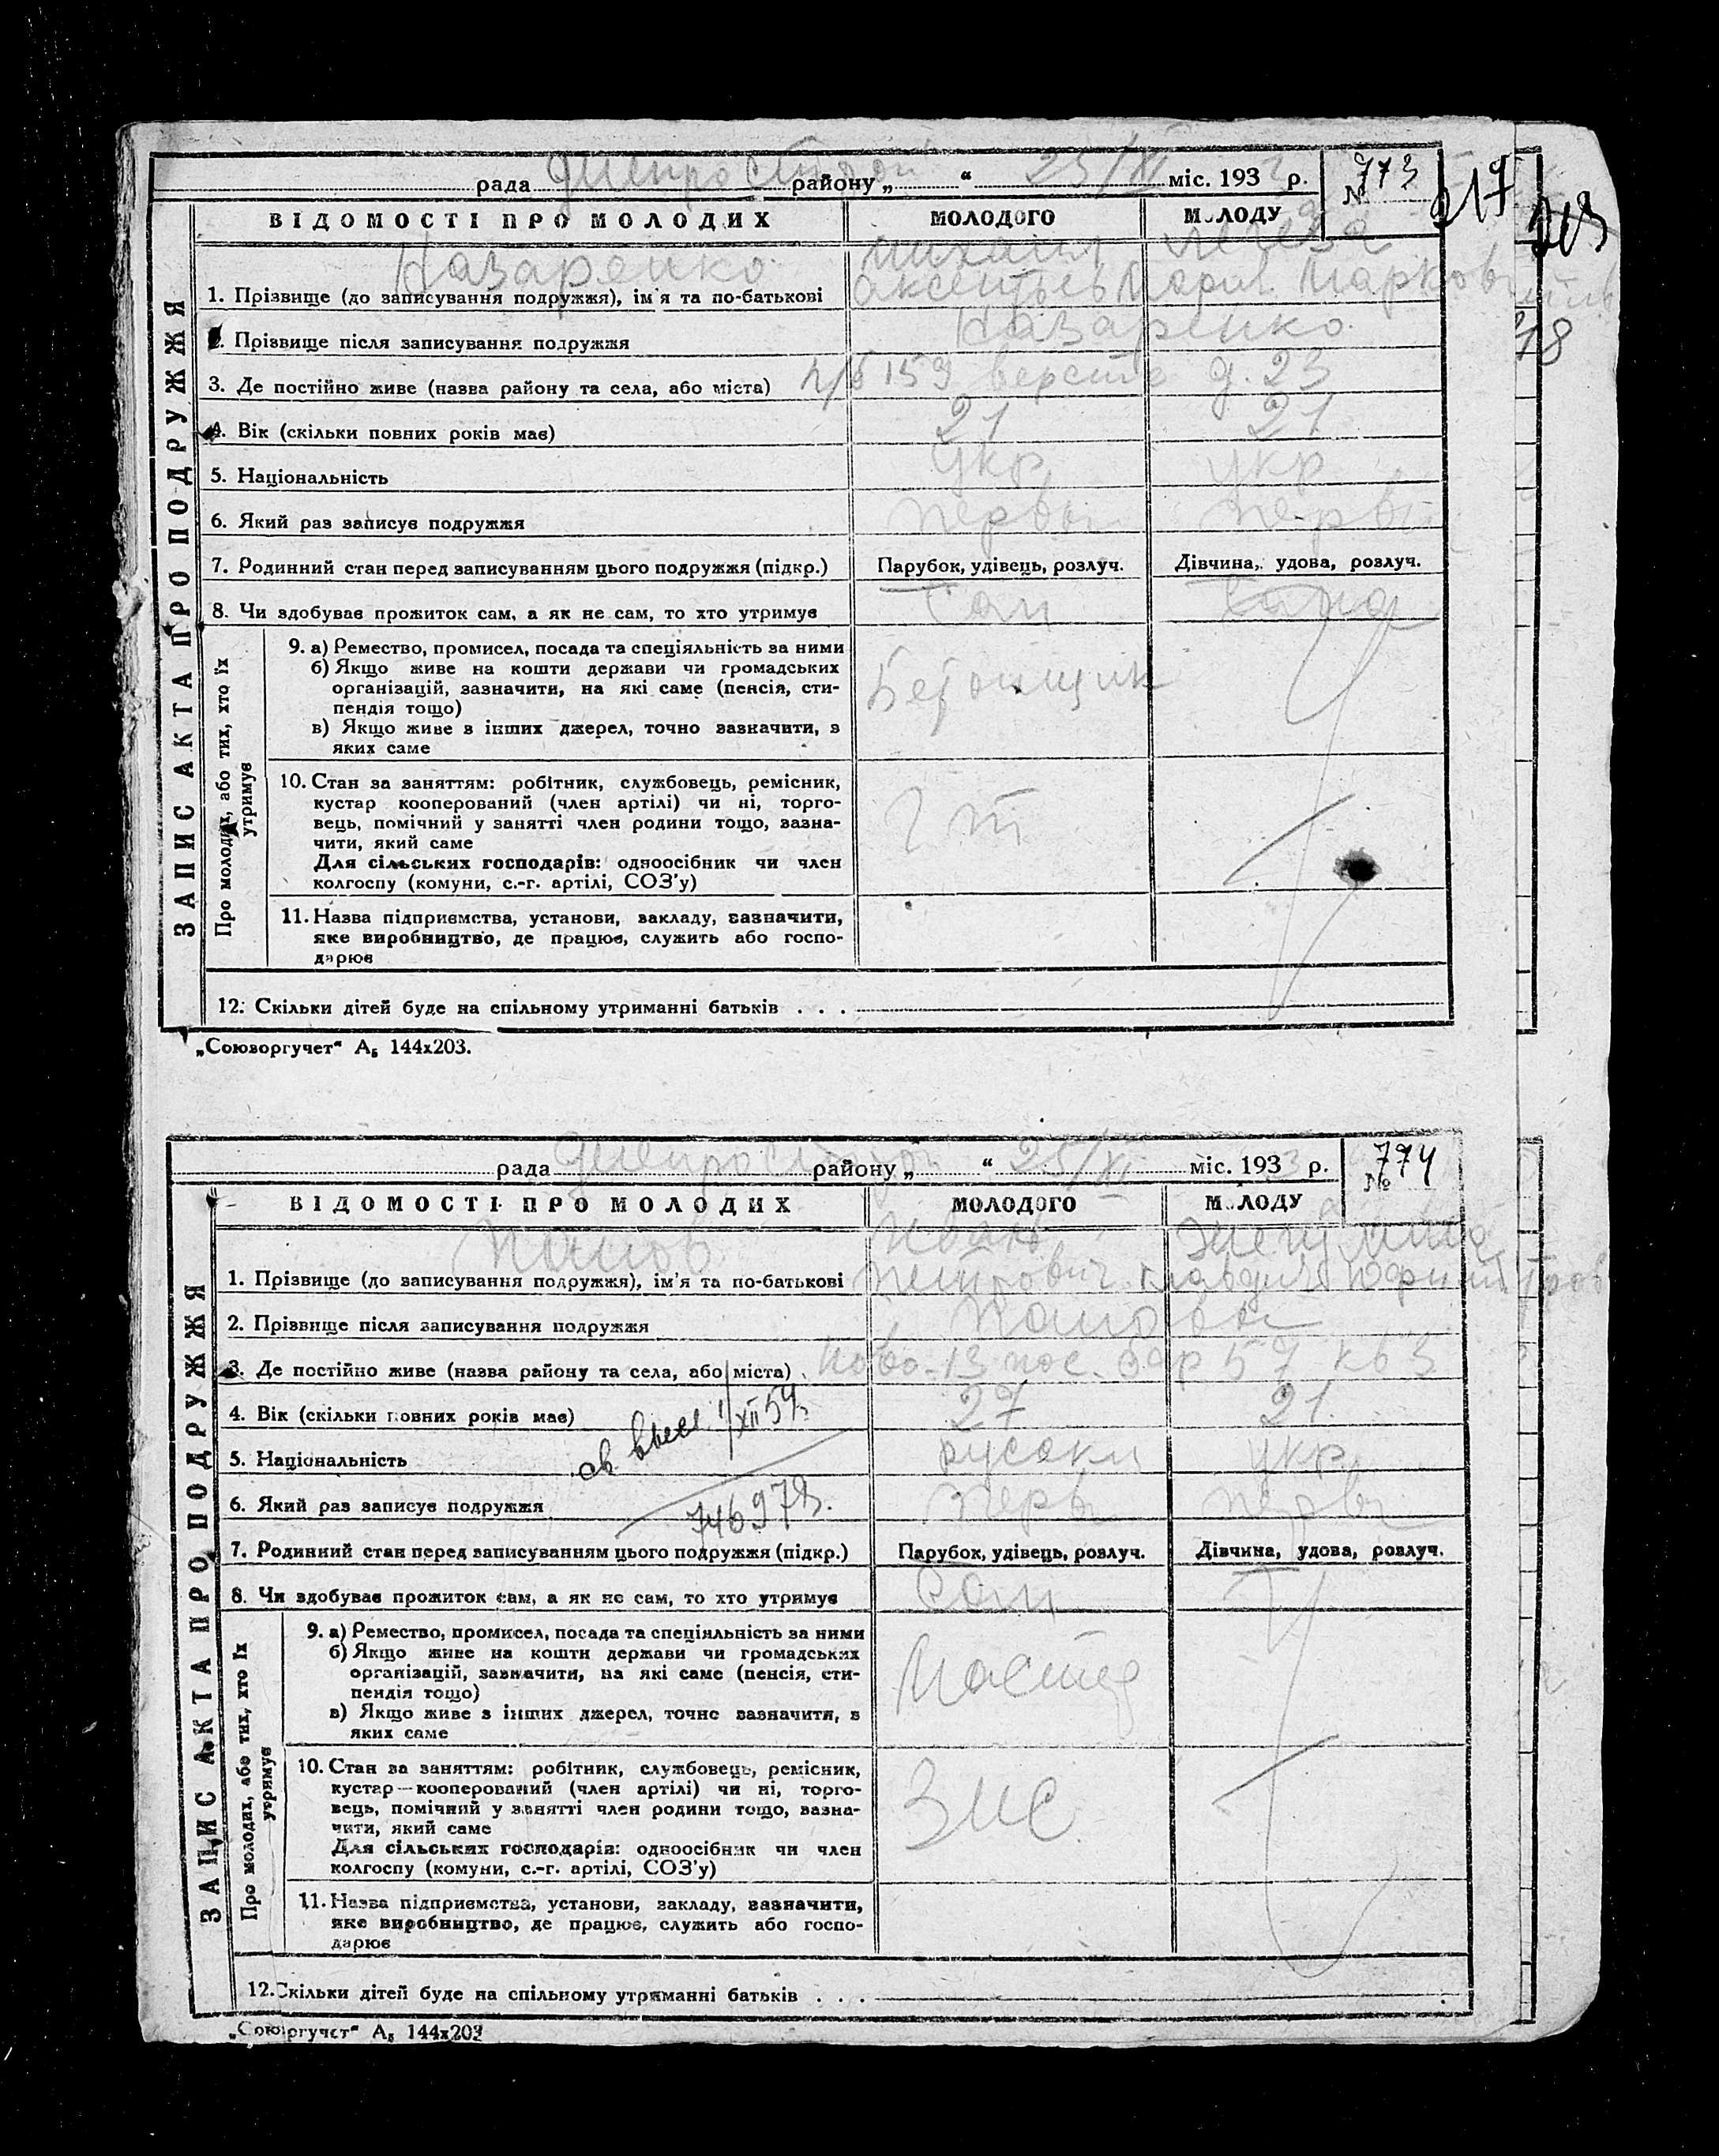 рада Днепрострой району „ “ 25/XI міс. 193 р. № 773
217
ВІДОМОСТІ ПРО МОЛОДИХ МОЛОДОГО МОЛОДУ
Назаренко Михаил
1. Прізвище (до записування подружжя), ім'я та по-батькові Аксентьев Мария Марков
2. Прізвище після записування подружжя Назаренко
3. Де постійно живе (назва району та села, або міста) 159 верста д. 23
4. Вік (скільки повних років має) 21 21
5. Національність укр укр
6. Який раз записує подружжя первы первы
7. Родинний стан перед записуванням цього подружжя (підкр.) Парубок, удівець, розлуч. Дівчина, удова, розлуч.
8. Чи здобуває прожиток сам, а як не сам, то хто утримує Сам Сама
ЗАПИС АКТА ПРО ПОДРУЖЖЯ
Про молодих, або тих, хто їх утримує
9. а) Ремество, промисел, посада та спеціяльність за ними
б) Якщо живе на кошти держави чи громадських
організацій, зазначити, на які саме (пенсія, сти-
пендія тощо)
в) Якщо живе з інших джерел, точно зазначити, з
яких саме
Бетонщик
10. Стан за заняттям: робітник, службовець, ремісник,
кустар кооперований (член артілі) чи ні, торго-
вець, помічний у занятті член родини тощо, зазна-
чити, який саме
Для сільських господарів: одноосібник чи член
колгоспу (комуни, с.-г. артілі, СОЗ'у)
11. Назва підприємства, установи, закладу, зазначити,
яке виробництво, де працює, служить або госпо-
дарює
12. Скільки дітей буде на спільному утриманні батьків . . .
„Союзоргучет“ А₅ 144х203.
рада Днепрострой району „ “ 25/XI міс. 1933 р. № 774
ВІДОМОСТІ ПРО МОЛОДИХ МОЛОДОГО МОЛОДУ
Панов Иван
1. Прізвище (до записування подружжя), ім'я та по-батькові Петрович Клавдия
2. Прізвище після записування подружжя Пановы
3. Де постійно живе (назва району та села, або міста) Ново-13 пос. бар 57 кв 3
4. Вік (скільки повних років має) 27 21
св. высл. 1/XII 57г.
5. Національність русски укр
6. Який раз записує подружжя первы первы
746978.
7. Родинний стан перед записуванням цього подружжя (підкр.) Парубок, удівець, розлуч. Дівчина, удова, розлуч.
8. Чи здобуває прожиток сам, а як не сам, то хто утримує Сам
ЗАПИС АКТА ПРО ПОДРУЖЖЯ
Про молодих, або тих, хто їх утримує
9. а) Ремество, промисел, посада та спеціяльність за ними
б) Якщо живе на кошти держави чи громадських
організацій, зазначити, на які саме (пенсія, сти-
пендія тощо)
в) Якщо живе з інших джерел, точно зазначити, з
яких саме
Мастер
10. Стан за заняттям: робітник, службовець, ремісник,
кустар—кооперований (член артілі) чи ні, торго-
вець, помічний у занятті член родини тощо, зазна-
чити, який саме
Для сільських господарів: одноосібник чи член
колгоспу (комуни, с.-г. артілі, СОЗ'у)
11. Назва підприємства, установи, закладу, зазначити,
яке виробництво, де працює, служить або госпо-
дарює
12. Скільки дітей буде на спільному утриманні батьків . . .
„Союзоргучет“ А₅ 144х203